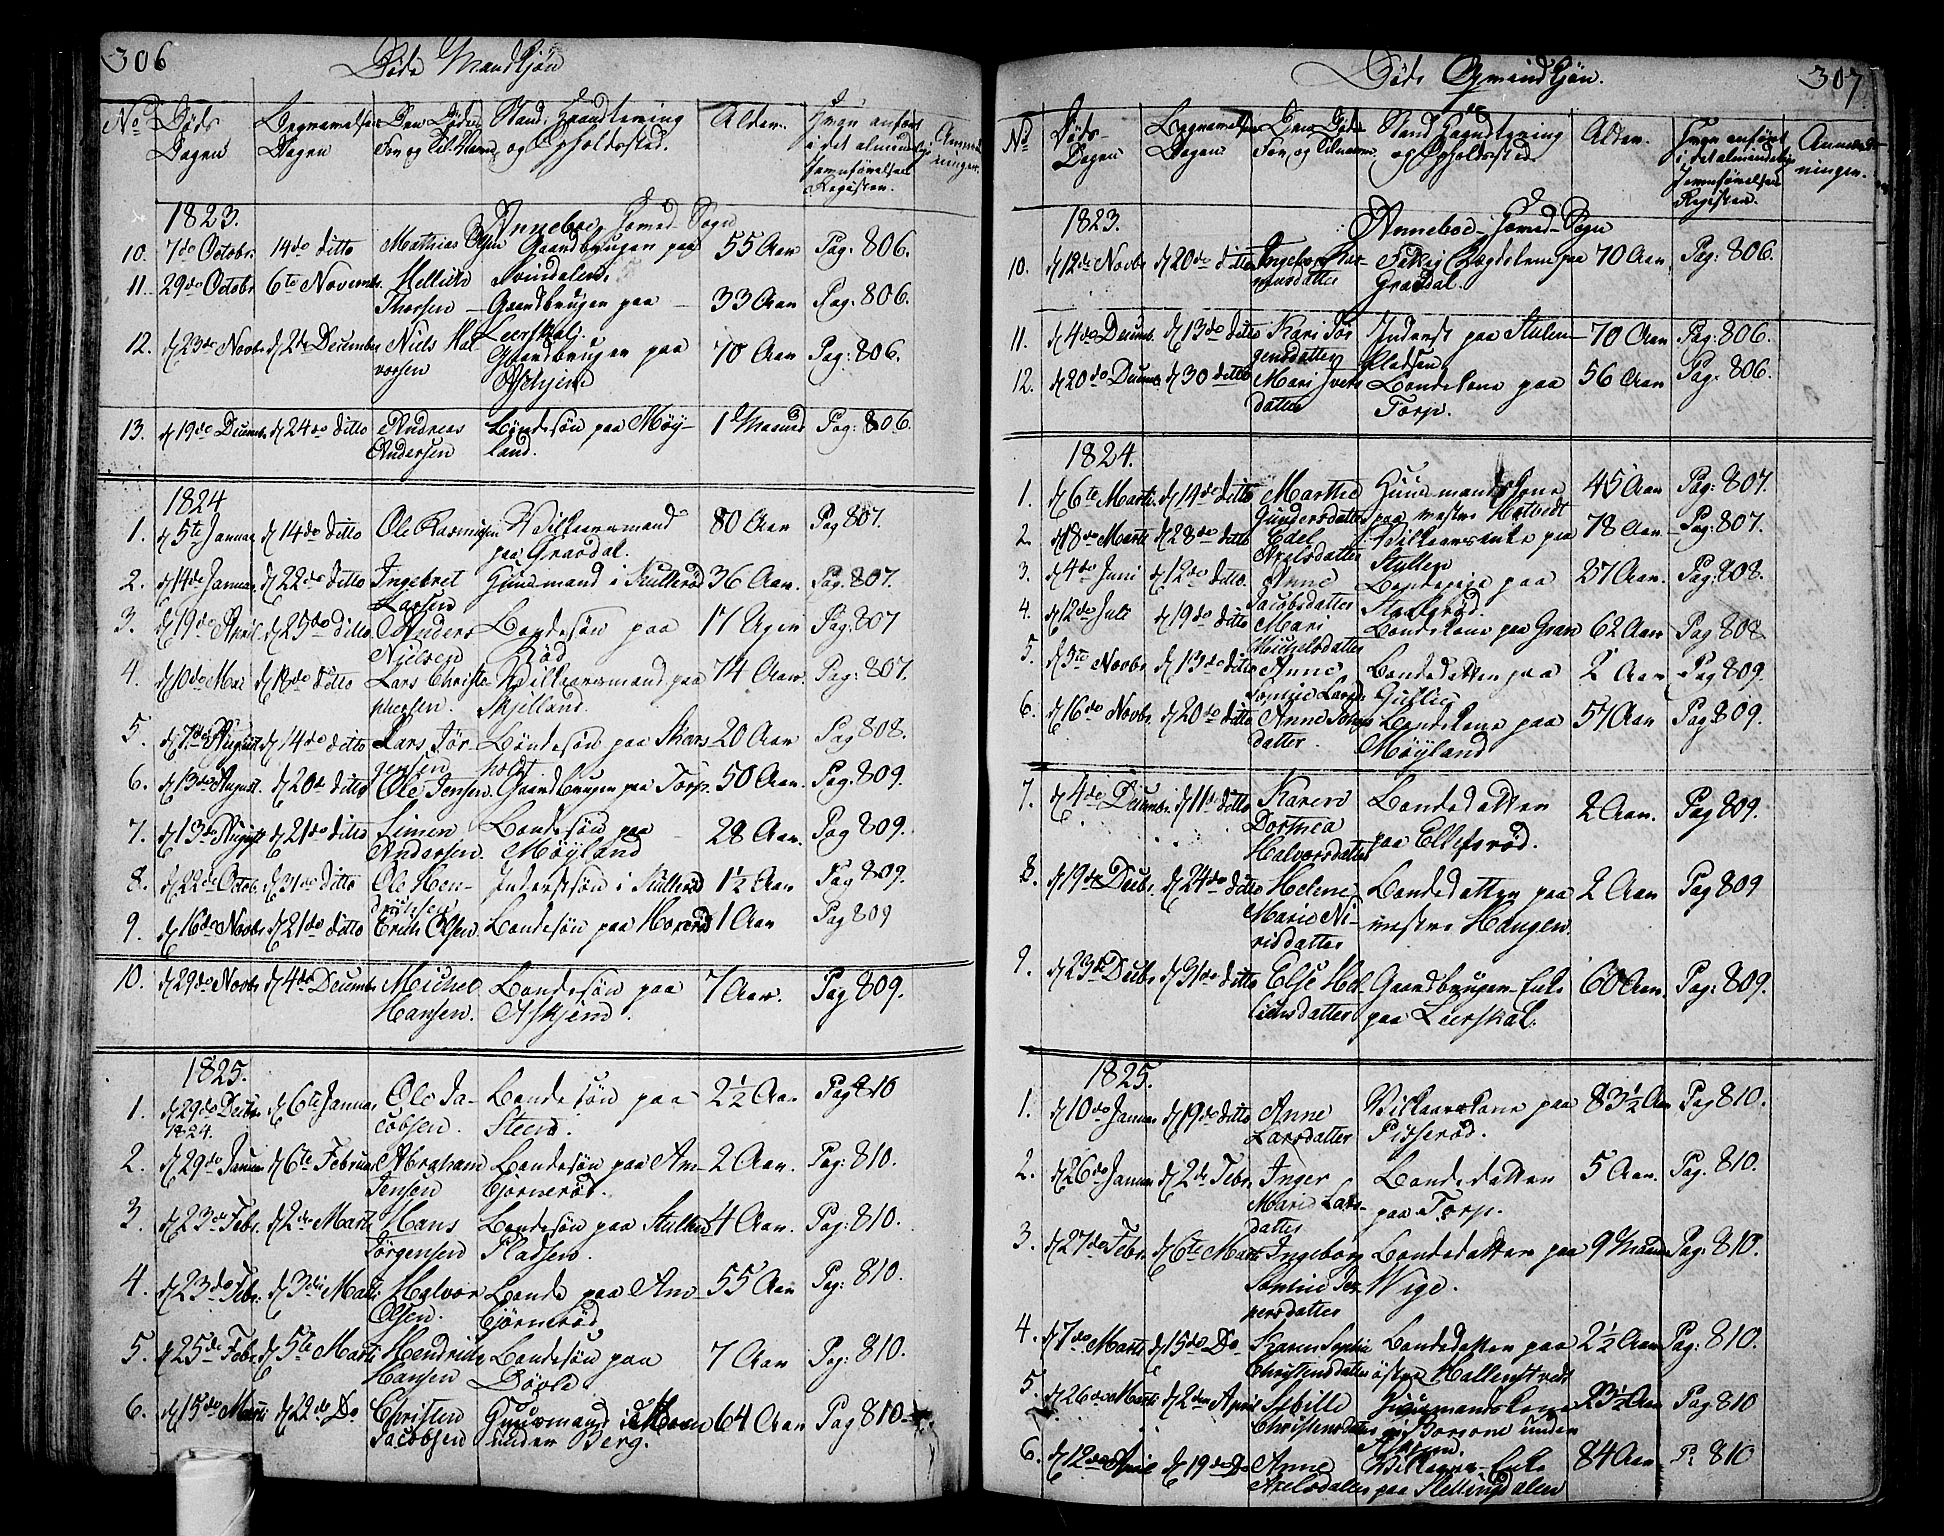 306
Døde Mandkjøn
No
Døds Dagen
Begravelses Dagen
Den Dødes For og Tilnavn
Stand, Handtering og Opholdssted.
Alder.
Hvor anført i det almindelige Jevnførelses Register.
Anmærkninger.
1823. Anneboe Hoved Sogn
10. 7de Octobr 14de ditto Mathias Olsen Gaardbruger paa Svindalen 55 Aar Pag: 806.
11. 29de Octobr 6te Novembr Thorsen Gaardbruger paa Leerskal. 33 Aar Pag: 806.
12. d 23de Novbr d 2de December Niels Halvorsen Gaardbruger paa Askjem 70 Aar Pag: 806.
13. d 19de Decembr d 24de ditto Andreas Andersen Bondesøn paa Møyland. 1 Maaned Pag: 806.
1824
1. d 5te Januar d 14de ditto Ole Rasmusen Vilkaarsmand paa Graadal. 80 Aar Pag 807.
2. d 14de Januar d 22de ditto Ingebret Larsen Huusmand i Skullerød 36 Aar. Pag: 807.
3. d 19de April d 25de ditto Anders Nielsen Bondesøn paa Rød 17 Uger Pag: 807
4. d 10de Mai d 18de ditto Lars Christophersen. Vilkaarsmand paa Skjelland. 74 Aar. Pag: 807.
5. d 7de August d 14de ditto Lars Jørgensen Bondesøn paa Skarsholt 20 Aar Pag 808.
6. d 13de August. d 20de ditto Ole Jensen Gaardbruger paa Torp. 50 Aar. Pag: 809.
7. d 13de August d 21de ditto Simen Andersen. Bondesøn paa Møyland 28 Aar. Pag 809.
8. d 22de Octob. d 31de ditto Ole Hendrichsen Inderstsøn i Skullerød 1½ Aar Pag 809.
9. d 16de Novbr d 21de ditto Erich Olsen. Bondesøn paa 1 Aar Pag 809
10. d 29de Novbr d 4de Decembr Michel Hansen. Bondesøn paa Askjem. 7 Aar. Pag 809.
1825.
1. d 29de Decbr 1824. d 6te Januar Ole Jacobsen. Bondesøn paa Steen. 2½ Aar Pag 810
2. d 29de Januar d 6te Februar Abraham Jensen Bondesøn paa Ambjørnerød. 2 Aar. Pag: 810.
3. d 23de Febr. d 2de Marti Hans Jørgensen Bondesøn paa Stulen Pladsen. 4 Aar. Pag: 810.
4. d 23de Febr. d 3die Marti Halvor Olsen. Bonde paa Ambjørnerød 55 Aar Pag: 810.
5. d 25de Febr. d 5te Marti Hendrich Hansen Bondesøn paa 7 Aar Pag: 810.
6. d 15de Marti d 22de Do Christen Jacobsen Huusmand under Berg. 64 Aar Pag 810
307.
Døde Qvindkjøn.
No
Døds Dagen
Begravelses Dagen
Den Døde For og Tilnavn
Stand Handtering og Opholdssted
Alder.
Hvor anført i det almindelige Jevnførelses Register.
Anmærkninger.
1823. Anneboe Hoved Sogn
10. d 12te Novbr d 20de ditto Ingeborg Rasmusdatter Graadal. 70 Aar Pag: 806.
11. d 4de Decemb. d 13de ditto Kari Jørgensdatter Inderst paa Stulen Pladsen 70 Aar Pag: 806.
12. d 20de Decemb. d 30 ditto Mari datter Bondekone paa Torp. 56 Aar Pag: 806.
1824.
1. d 6te Marti d 14de ditto Marthe Gundersdatter Huusmandskone paa vestre Hotvedt 45 Aar Pag: 807.
2. d 18de Marti d 28de ditto Edel Axelsdatter Vilkaarsenke paa Stullen 78 Aar Pag: 807.
3. d 4de Juni d 12te ditto. Anne Jacobsdatter Bondepige paa 27 Aar Pag: 808.
4. d 12te Juli d 19de ditto Mari Michelsdatter Bondekone paa 62 Aar Pag 808
5. d 3te Novbr d 13de ditto Anne Sophie Larsd. Bondedatter paa Gullie 2 Aar Pag 809.
6. d 16de Novbr. d 20de ditto Anne datter. Bondekone paa Møyland 57 Aar Pag 809.
7. d 4de Decembr d 11te ditto Karen Dorthea Halvorsdatter Bondedatter paa Ellefsrød. 2 Aar. Pag 809.
8. d 19de Decbr. d 24de ditto Helene Marie Nirisdatter Bondedatter paa vestre Haugen. 2 Aar Pag 809
9. d 23de Decbr d 31te ditto Else Helliesdatter Gaardbruger-Enke paa Leerskal. 60 Aar. Pag: 809.
1825.
1. d 10de Januar d 19de ditto Anne Larsdatter Vilkaarskone paa Pisserød. 83½ Aar Pag 810.
2. d 26de Januar d 2de Febr. Inger Marie Larsdatter Bondedatter paa Torp. 5 Aar. Pag. 810.
3. d 27de Febr. d 6te Marti Ingeborg Sophie Jespersdatter Bondedatter paa Wige. 9 Maaneder Pag: 810.
4. d 7de Marti d 15de Do Karen Sophie Christensdatter Bondedatter paa østre Hallenstvedt 2½ Aar Pag: 810.
5. d 26de Marti d 2den April Sibille Christensdatter Huusmandskone under Askjem. 23½ Aar Pag 810
6. d 12te April d 19de Do Anne Axelsdatter Vilkaars-Enke paa Slettingdalen 84 Aar P: 810